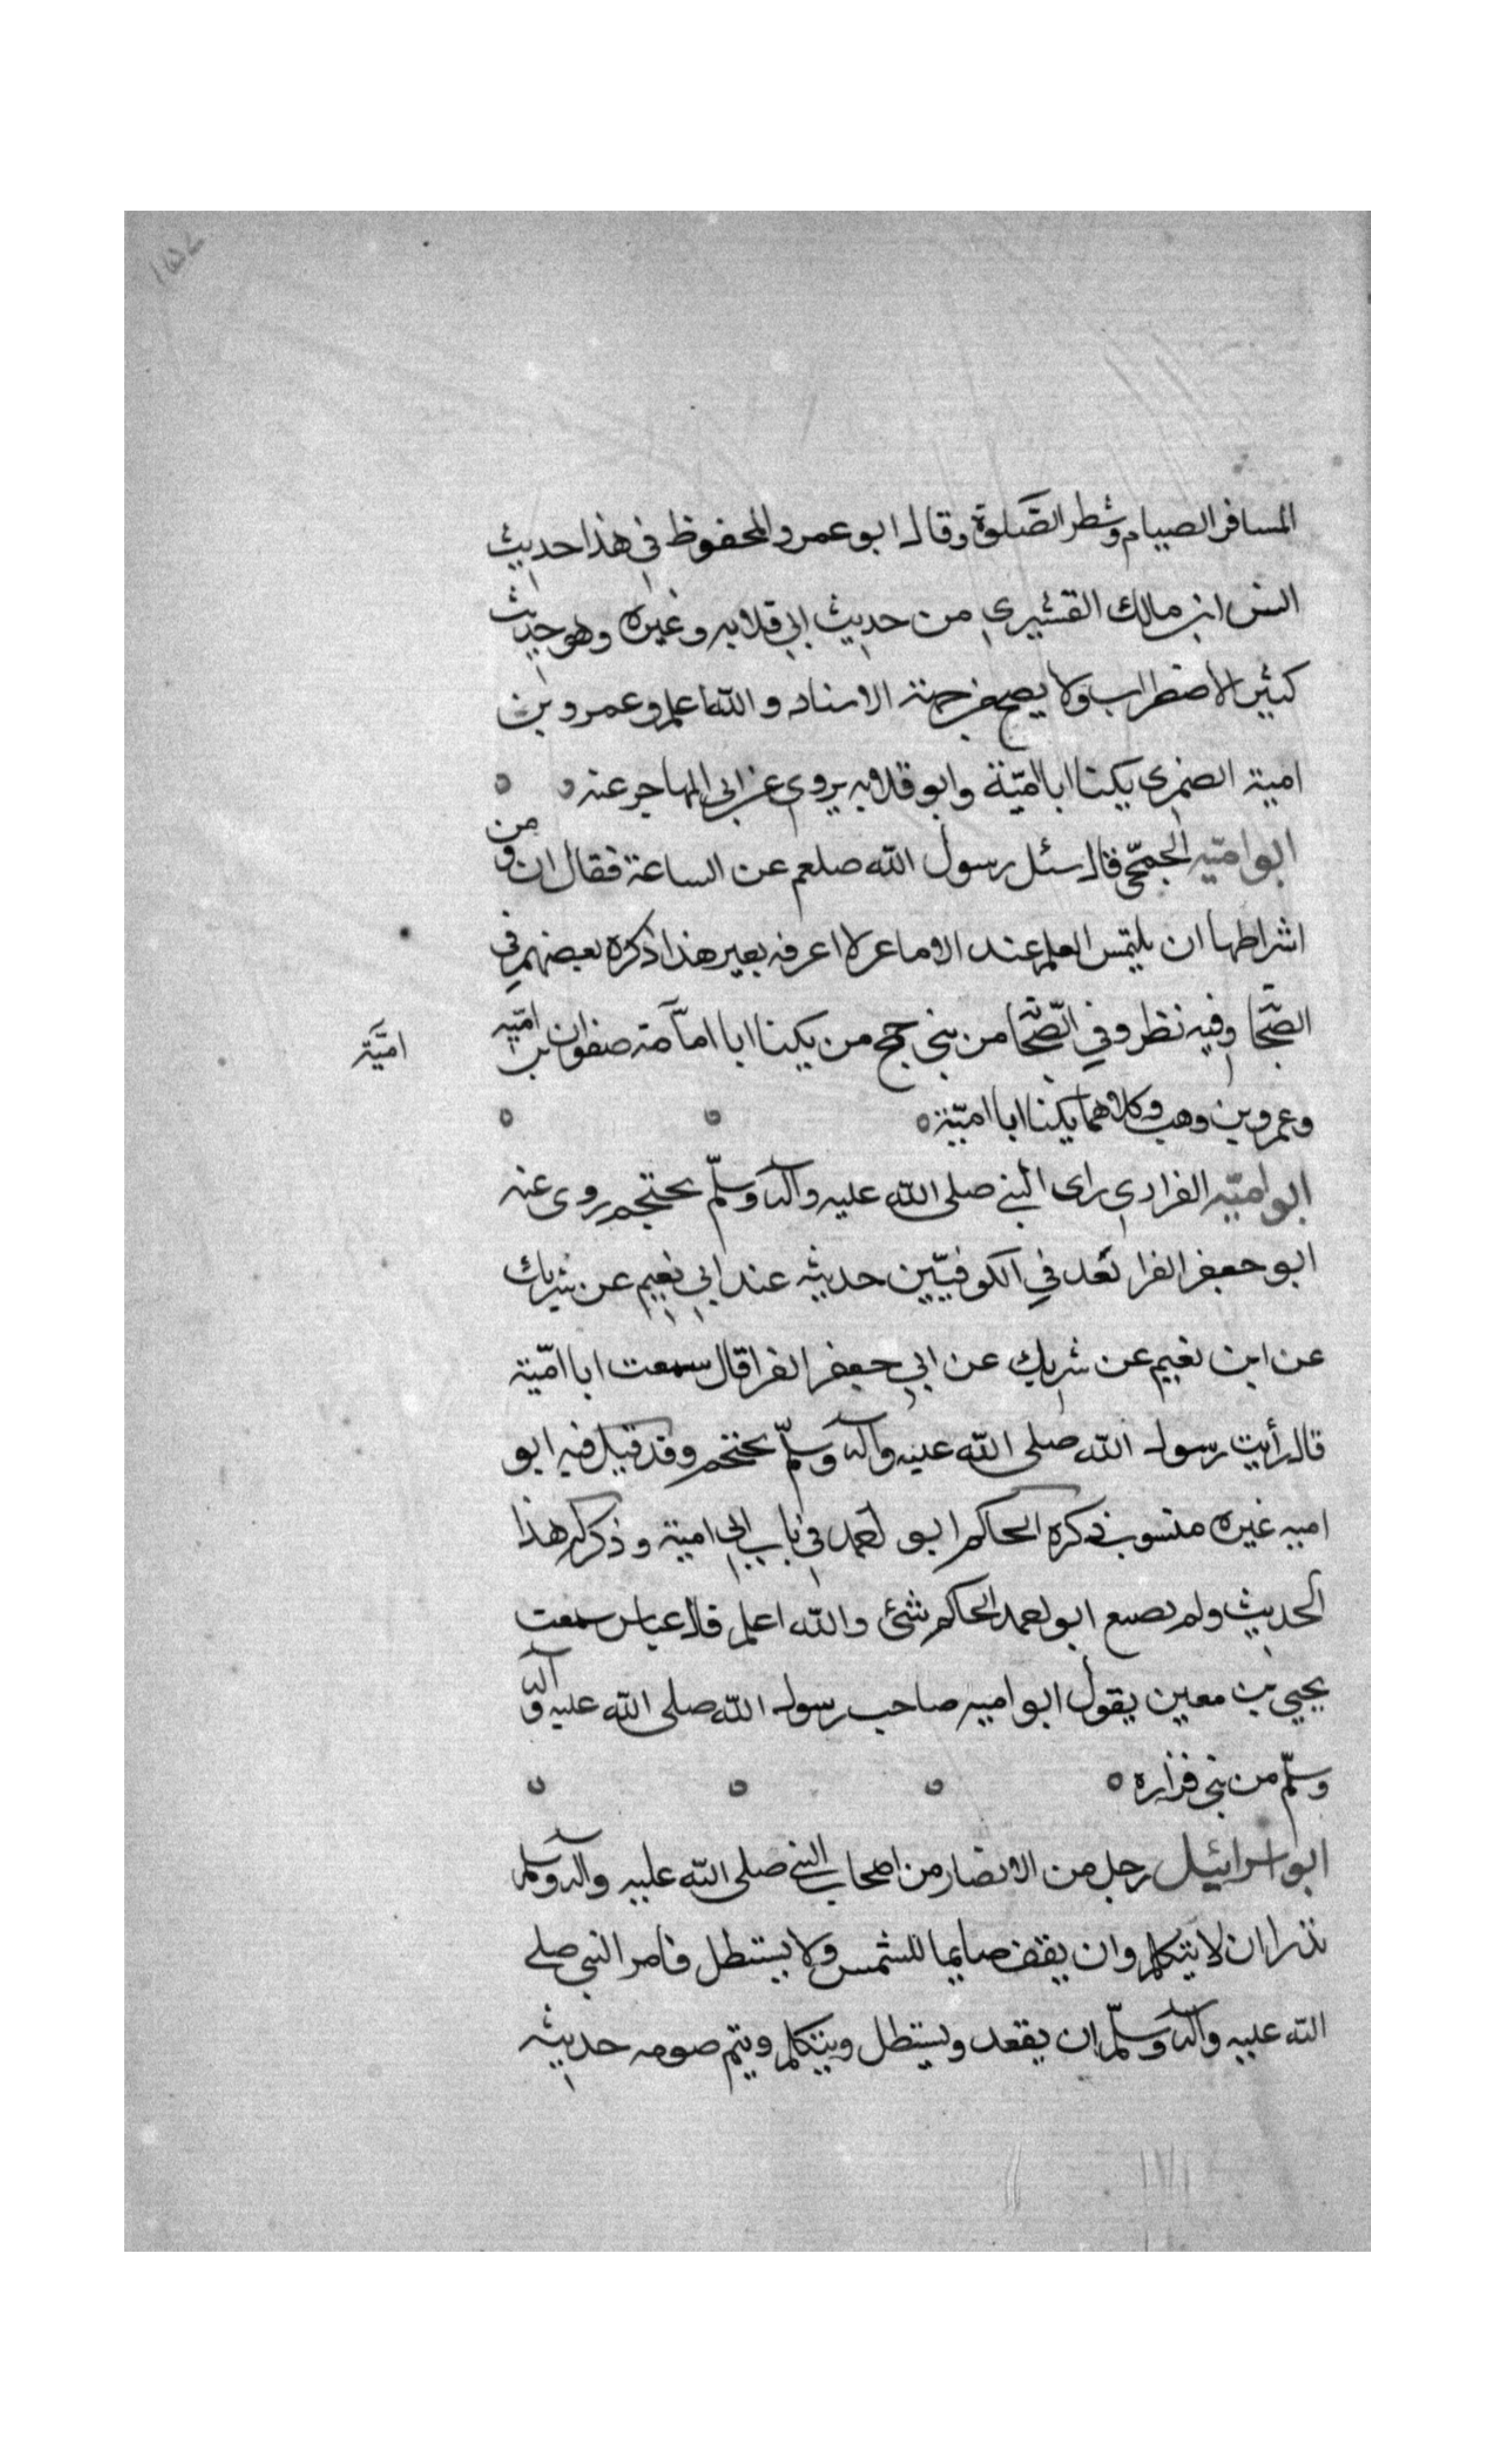 المسافر الصيام وشطر الصَّلوة وقال ابو عمرو المحفوظ في هذا حديث
انس ابن مالك القشيري من حديث ابي قلابه وغيره وهو حديث
كثير الاضطراب ولا يصح من جهة الاسناد والله اعلم وعمرو بن
امية الضمري يكنا ابا اميّة وابو قلابه يروي عن ابي المهاجر عنه ه ه
ابو اميّه الجمحّي قال سئل رسول الله صلعم عن الساعة فقال ان من
اشراطها ان يلتمس العلم عند الاصاعر لا اعرفه بعير هذا ذكره بعضهم في
الصّحا وفيه نظر وفي الصّحا من بني جمح من يكنا ابا امآمة صفوان بن اميّه
اميَّة
وعمرو بن وهب وكلاهما يكنا ابا اميّة ه ه ه
ابو اميّه الفزاري راى النبي صلى الله عليه وآله وسلّم يحتجم روى عنه
ابو جعفر الفرا يُعد في الكوفيّين حديثه عند ابي نعيم عن شريك
عن ابن نعيم عن شريك عن ابي جعفر الفرا قال سمعت ابا اميّة
قال رأيت رسول الله صلى الله عليه وآله وسلّم يحتجم وقد قيل فيه ابو
اميه غيره منسوب ذكره الحاكم ابو احمد في باب ابي امية وذكر له هذا
الحديث ولم يصنع ابو احمد الحاكم شئ والله اعلم قال عباس سمعت
يحيي بن معين يقول ابو اميه صاحب رسول الله صلى الله عليه وآله
وسلّم من بني فزاره ه ه ه ه
ابو اسرائيل رجل من الانصار من اصحاب النبي صلى الله عليه وآله وسلم
نذر ان لا يتكلم وان يقف صايما للشمس ولا يستظل فامر النبي صلى
الله عليه وآله وسلّم ان يقعد ويستظل ويتكلم ويتم صومه حديثه